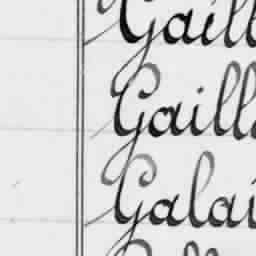 Gaill
Gaill
Galai